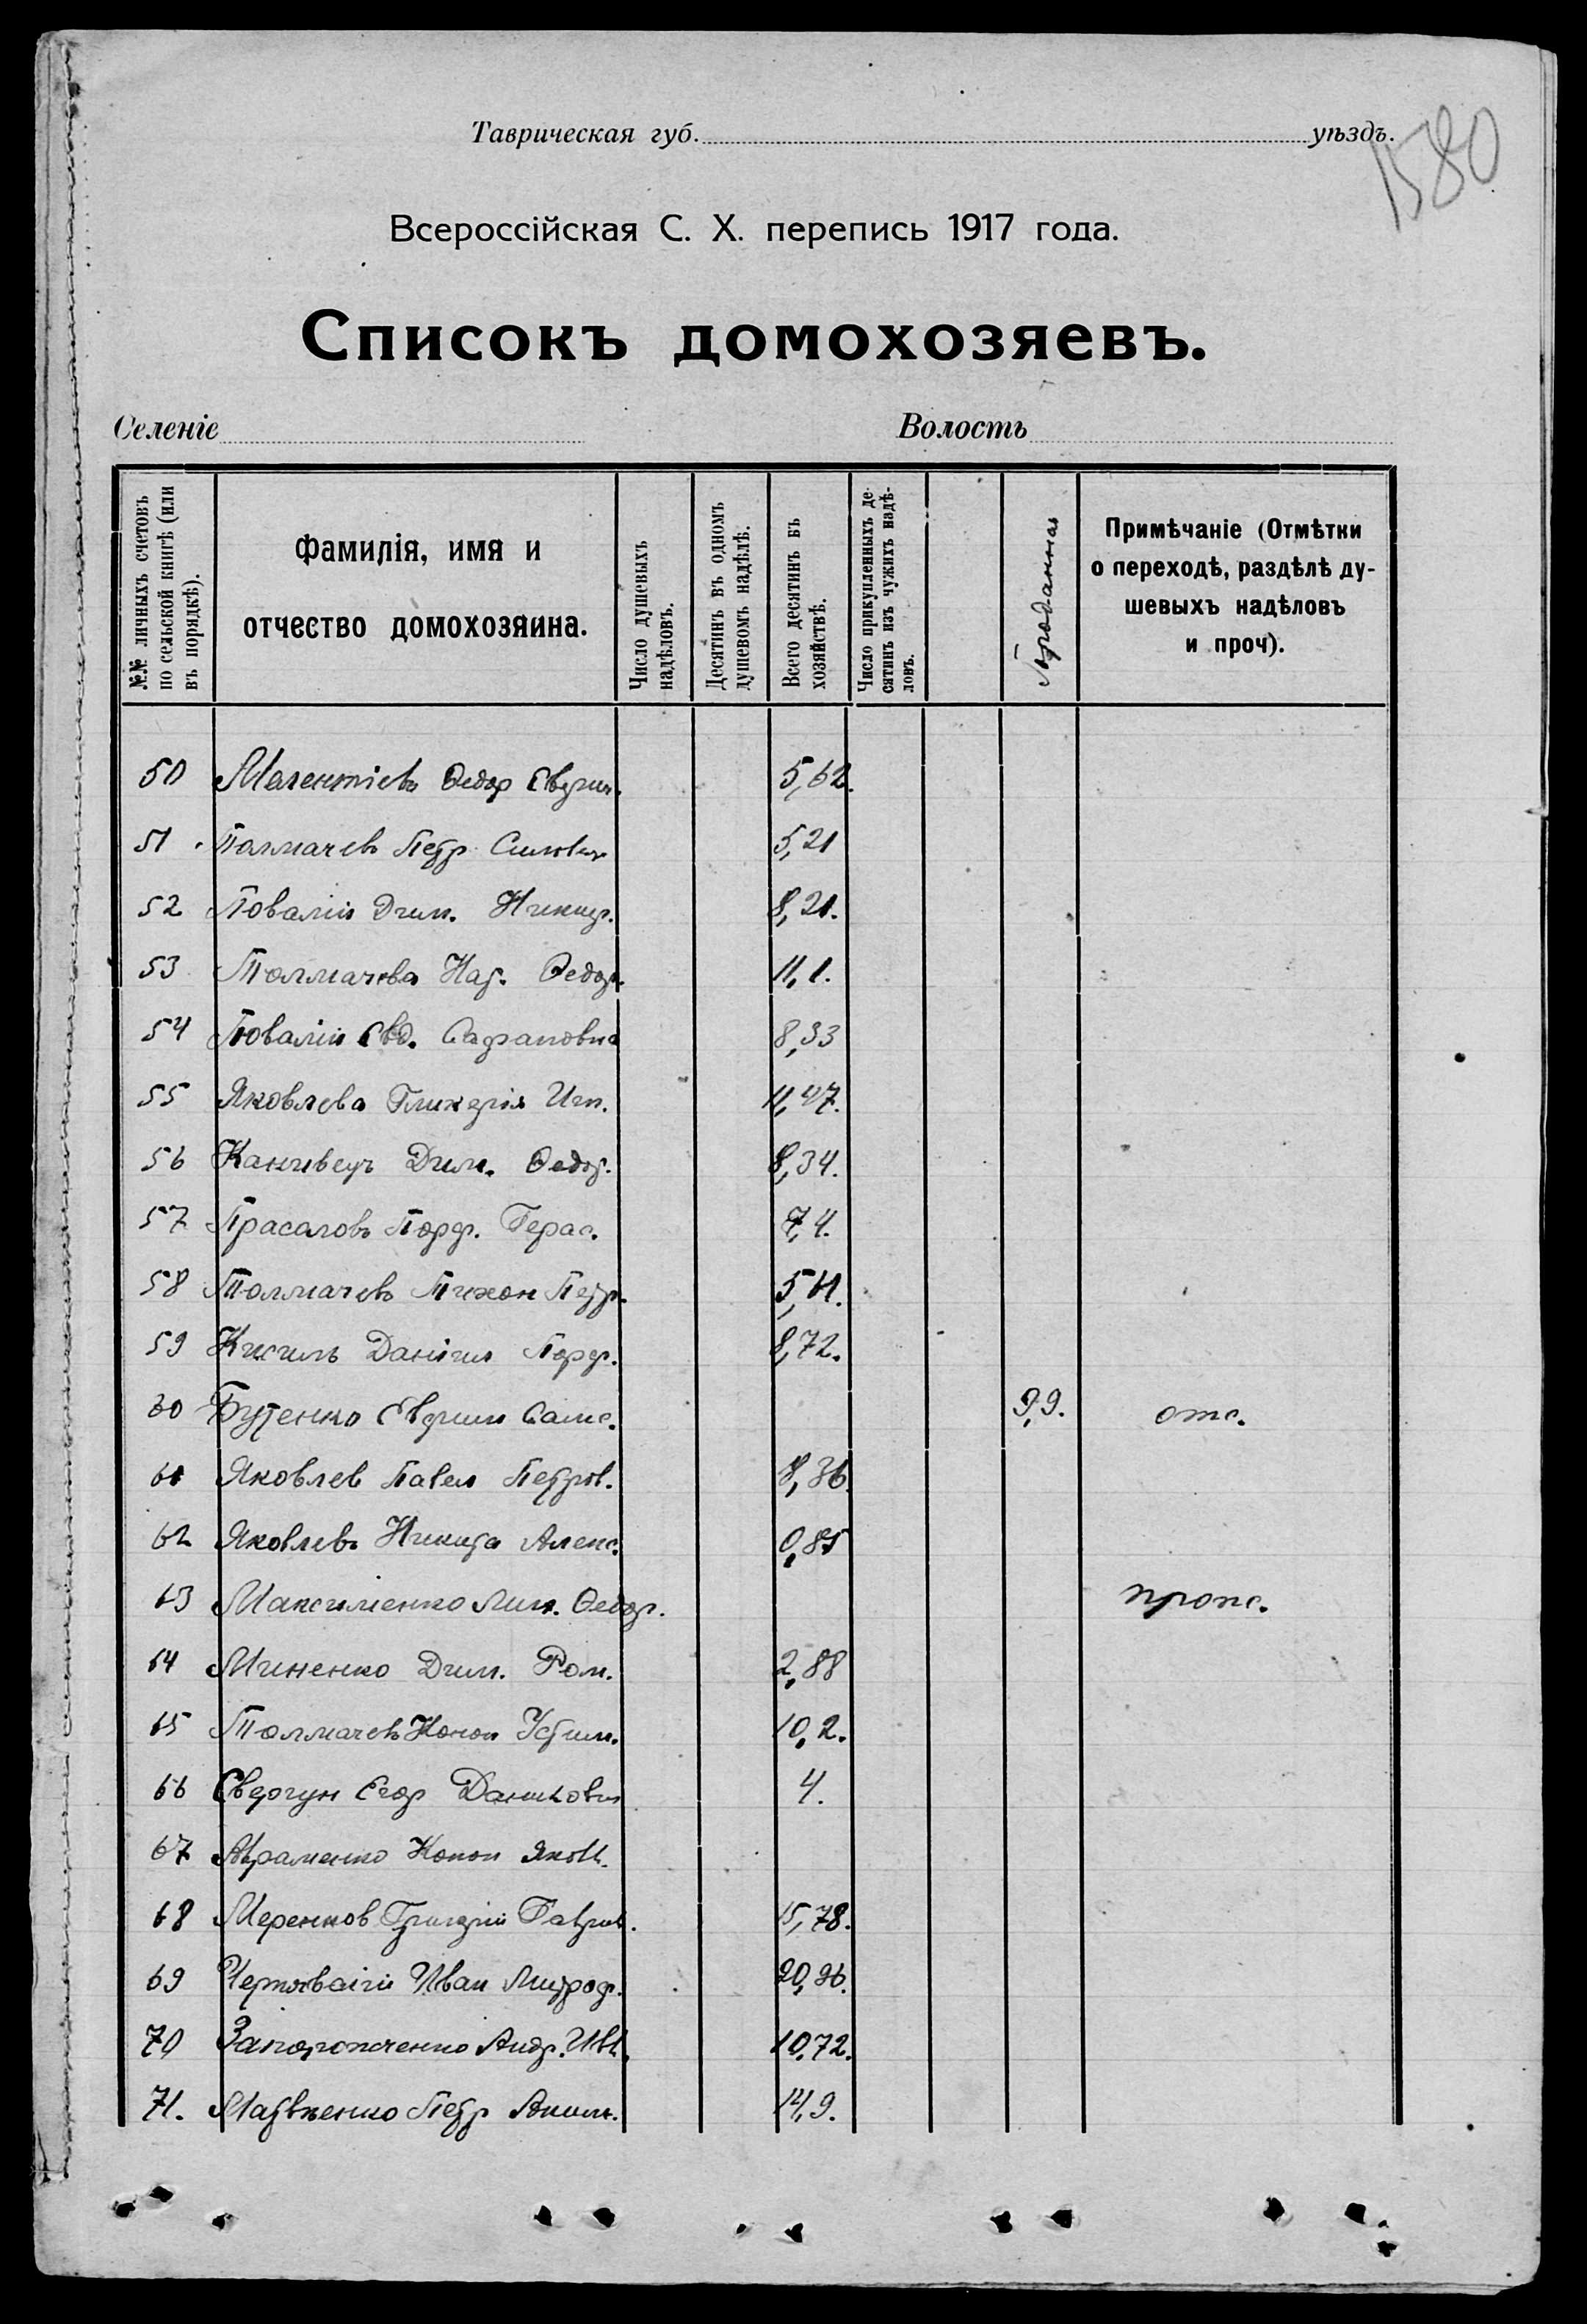 1580
Таврическая губ. уѣздъ.
Всероссійская С. Х. перепись 1917 года.
Списокъ домохозяевъ.
Селеніе Волость
№№ личныхъ счетовъ по сельской книгѣ (или въ порядкѣ).
Фамилія, имя и отчество домохозяина.
Число душевыхъ надѣловъ.
Десятинъ въ одномъ душевомъ надѣлѣ.
Всего десятинъ въ хозяйствѣ.
Число прикупленныхъ десятинъ изъ чужихъ надѣловъ.
Проданная
Примѣчаніе (Отмѣтки о переходѣ, раздѣлѣ душевыхъ надѣловъ и проч).
50 Федор 5,62.
51 Толмачевъ Петр 5,21
52 Повалій Дим. Никиф. 8,21.
53 Толмачева Нат. Федор. 11,1.
54 Повалій Евд. 8,33
55 Яковлева Гликерія Игн. 11,47.
56 Канивецъ Дим. Федор. 8,34.
57 Прасаловъ Порф. Герас. 7,4.
58 Толмачевъ Тихон Петр. 5,41.
59 Кисиль Даніил Порф. 8,72.
60 Бутенко Евфим Самс. 9,9. отс.
61 Яковлев Павел Петров. 8,36
62 Яковлевъ Никита Алекс. 0,85
63 Максименко Федор. пропс.
64 Миненко Дим. Ром. 2,88
65 Толмачевъ Конон Устим. 10,2.
66 Свергун Егор Данилович 4.
67 Авраменко Конон Яковл.
68 Меренков Григорій Гаврил. 15,78.
69 Иван Митроф. 20,96.
70 Запорожченко Андр. Ив. 10,72.
71. Матвѣенко Петр Аким. 14,9.